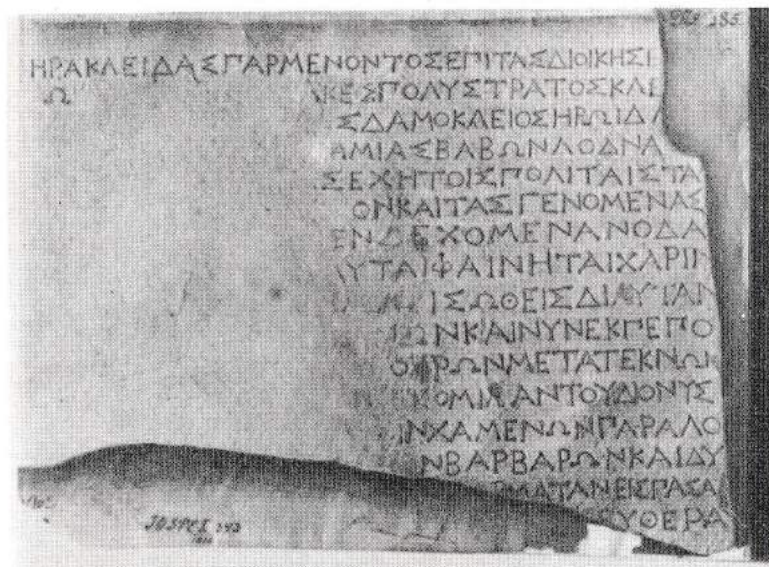 ΗΡΑΚΛΕΙΔΑΣΠΑΡΜΕΝΟΝΤΟΣΕΠΙΤΑΣΔΙΟΙΚΗΣΙ
Ω ΚΕΣΠΟΛΥΣΤΡΑΤΟΣΚΛΕ
ΣΔΑΜΟΚΛΕΙΟΣΗΡΩΙΔΑ
ΑΜΙΑΣΒΑΒΩΝΛΟΔΝΑ
ΣΕΧΗΤΟΙΣΠΟΛΙΤΑΙΣΤΑ
ΟΝΚΑΙΤΑΣΓΕΝΟΜΕΝΑΣ
ΕΝΔΕΧΟΜΕΝΑΝΟΔΑ
ΥΤΑΙΦΑΙΝΗΤΑΙΧΑΡΙΝ
ΙΣΩΘΕΙΣΔΙΑΥΤΑΝ
ΩΝΚΑΙΝΥΝΕΚΠΕΠΟ
ΟΥΡΩΝΜΕΤΑΤΕΚΝΩΝ
ΑΝΤΟΥΔΙΟΝΥΣ
ΙΝΧΑΜΕΝΩΝΠΑΡΑΛΟ
ΝΒΑΡΒΑΡΩΝΚΑΙΔΥ
ΜΑΤΑΝΕΙΣΠΑΣΑ
ΕΥΘΕΡΑ